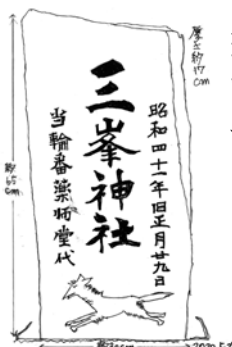 厚さ約17cm
昭和四十一年旧正月廿九日
三峯神社
当輪番薬師堂代
約65cm